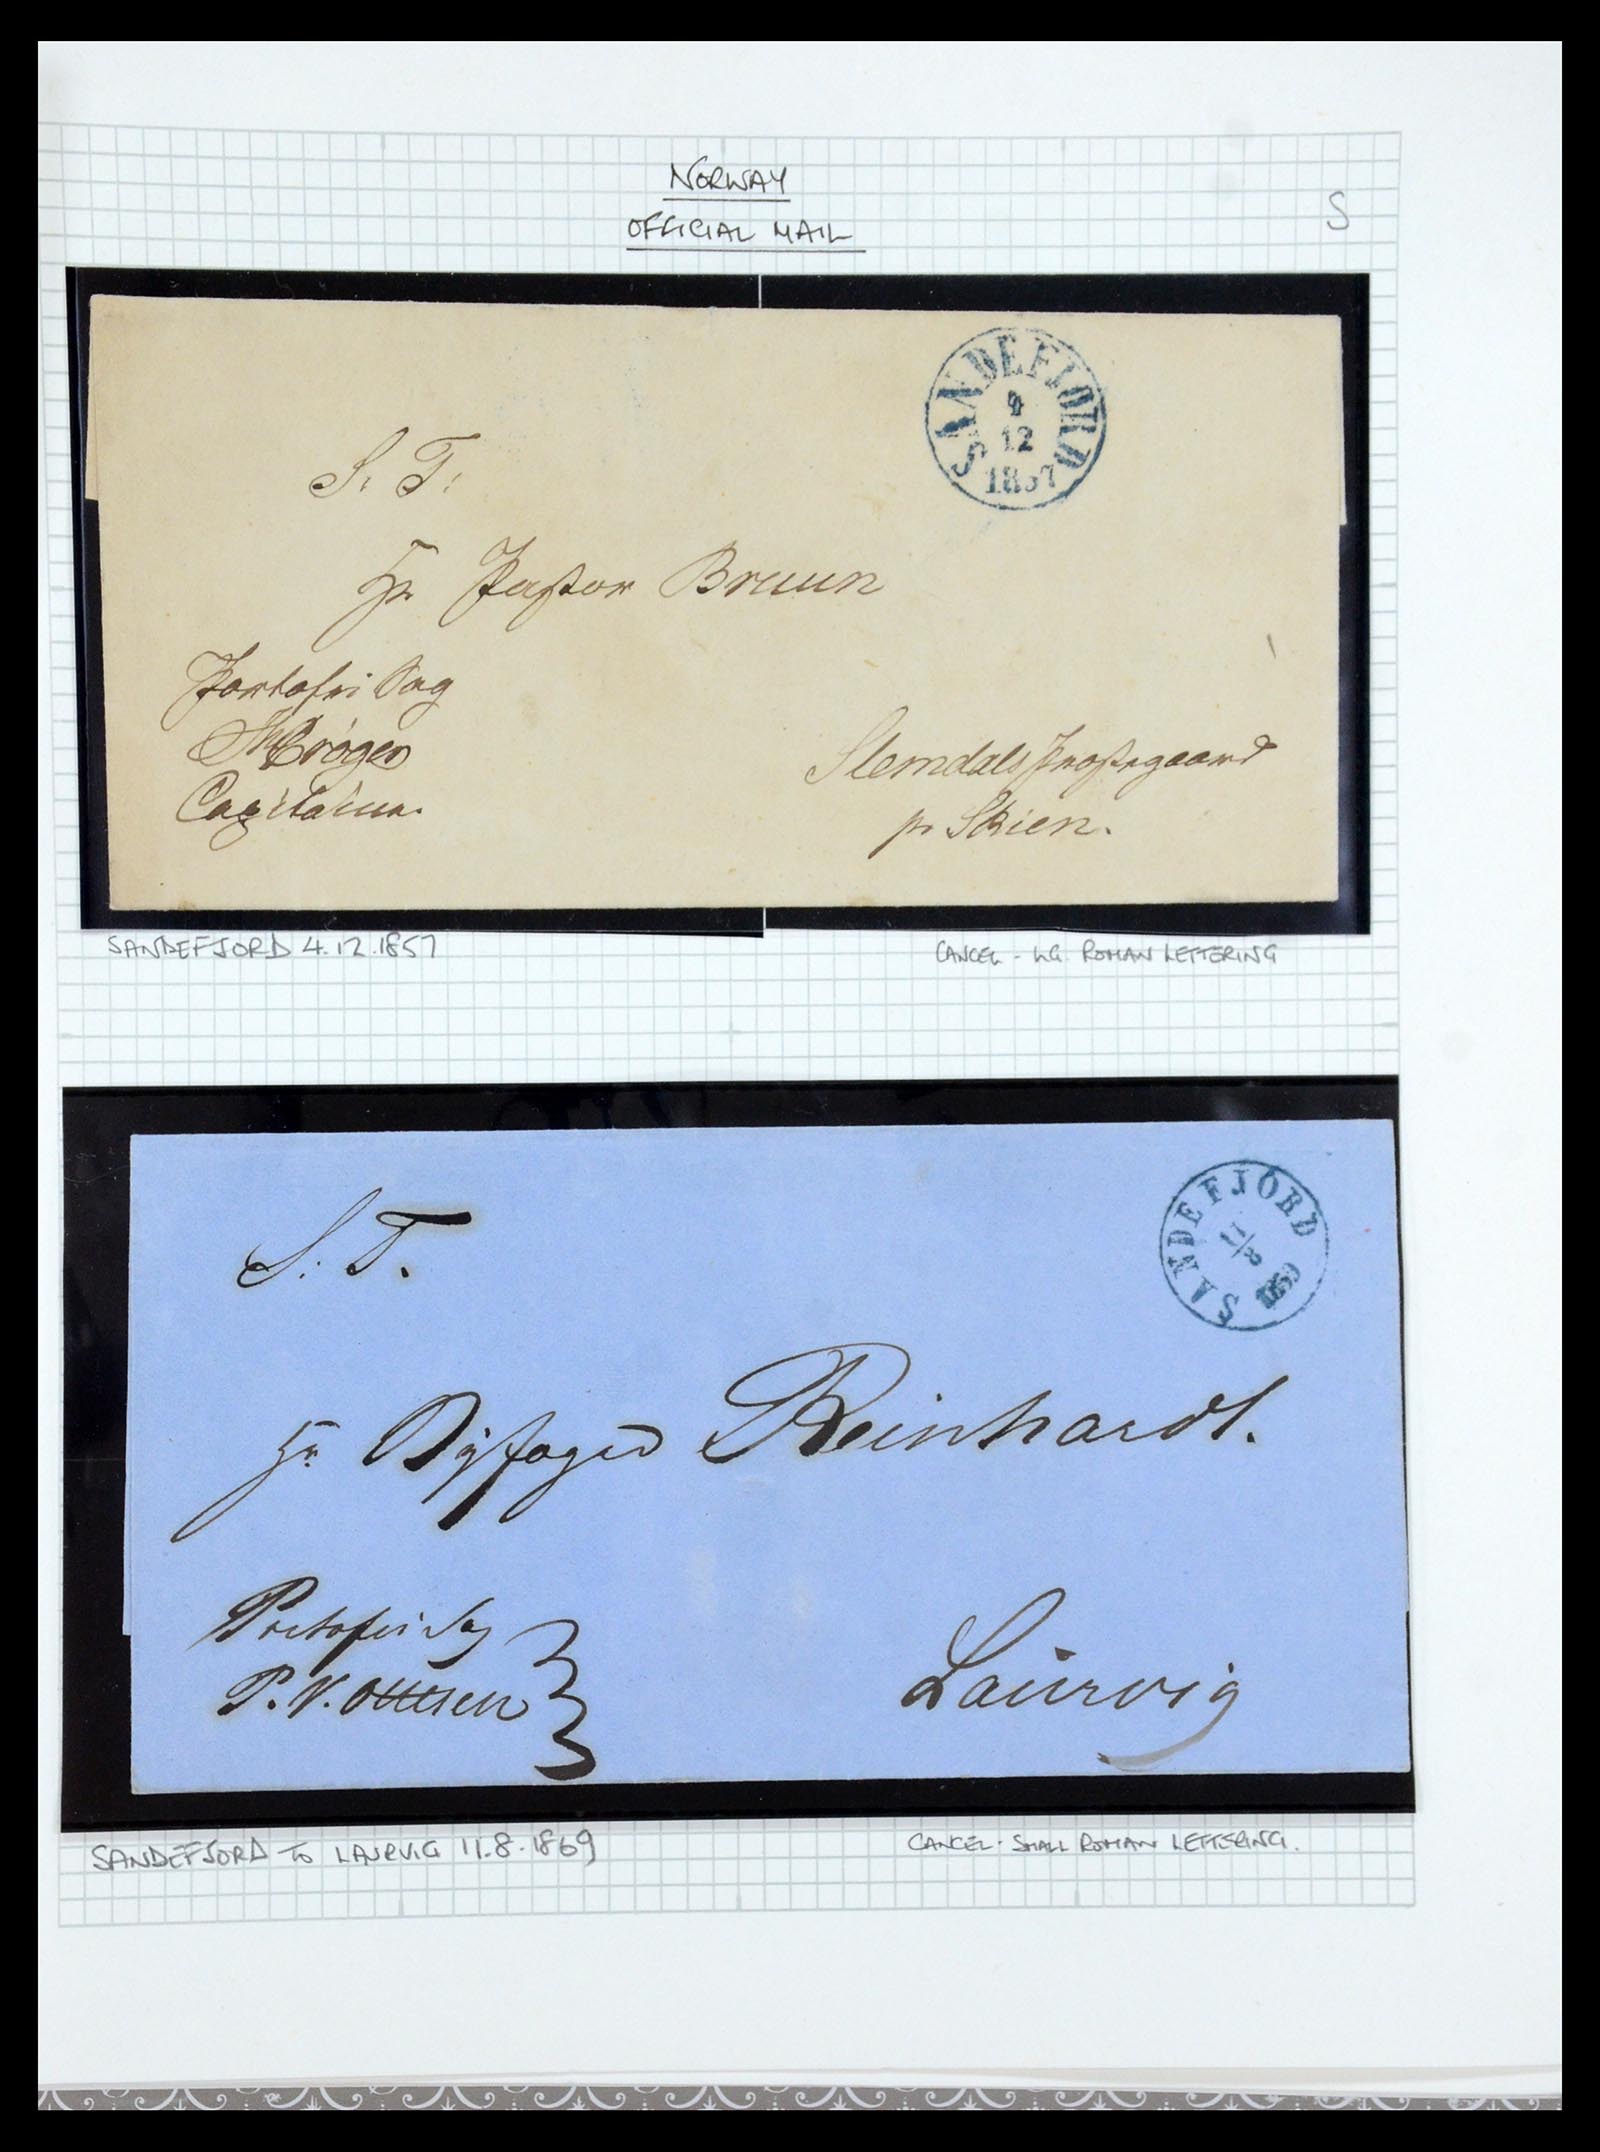 NORWAY
OFFICIAL MAIL
S
SANDEFJORD
4
12
1857
S. T.
Hr Pastor Bruun
Portofri Sag
Capitain.
Slemdals Prestegaard
pr Skien.
SANDEFJORD 4.12.1857
CANCEL - LG. ROMAN LETTERING
SANDEFJORD
11/8
1869
S. T.
Hr Byfoged Reinhardt.
Portofri Sag
P. V. Ottesen
Laurvig
SANDEFJORD TO LAURVIG 11.8.1869
CANCEL - SMALL ROMAN LETTERING.